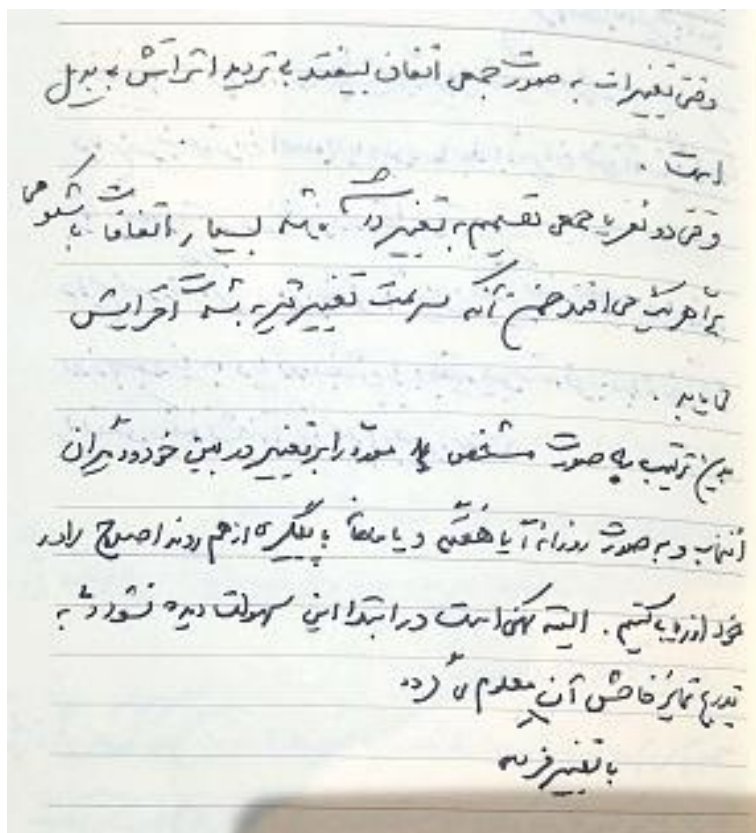 وقتی تغییرات به صورت جمعی اتفاق بیفتد بی تردید اثراتش بی بدیل
است .
وقتی دو نفر یا جمعی تصمیم به تغییر داشته باشند بسیار اتفاقات باشکوهی
می افتد ضمن آنکه سرعت تغییر نیز به شدت افزایش
می یابد .
بدین ترتیب به صورت مشخص را برای تغییر در بین خود و دیگران
انتخاب و به صورت روزانه آیا هفتگی و یا ماهانه با یکدیگر از هم روند اصلاح را در
خود ارزیابی کنیم . البته ممکن است در ابتدا این سهولت دیده نشود و به
تدریج تمایز فاحش آن معلوم می گردد
با تغییر فردی